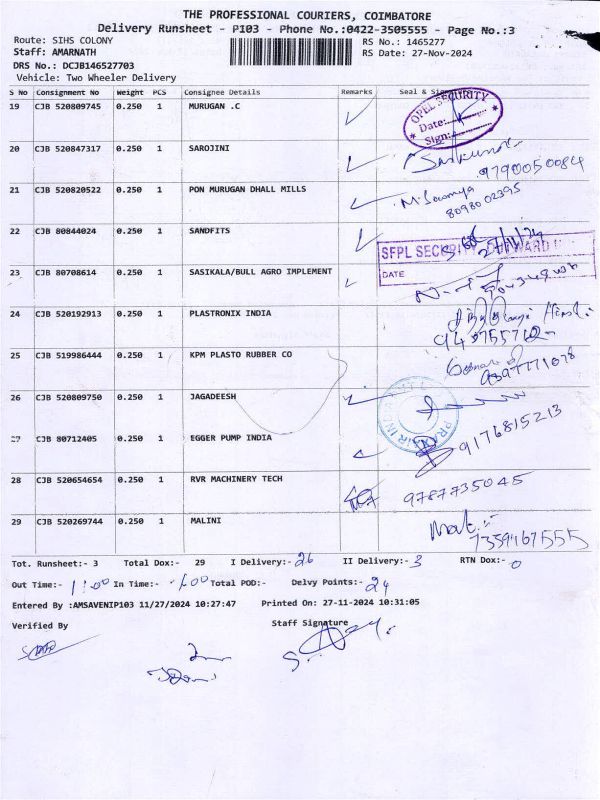 THE PROFESSIONAL COURIERS, COIMBATORE
Delivery Runsheet - P103 - Phone No.:0422-3505555 - Page No.:3
Route: SIHS COLONY
RS No.: 1465277
Staff: AMARNATH
RS Date: 27-Nov-2024
DRS No.: DCJB146527703
Vehicle: Two Wheeler Delivery
S No Consignment No Weight PCS Consignee Details Remarks Seal &
19 CJB 520809745 0.250 1 MURUGAN .C
OPEL SECURITY
Date:
Sign:
20 CJB 520847317 0.250 1 SAROJINI
9790050084
21 CJB 520820522 0.250 1 PON MURUGAN DHALL MILLS
M. Sowmya
8098002395
22 CJB 80844024 0.250 1 SANDFITS
SFPL SECURITY
DATE
23 CJB 80708614 0.250 1 SASIKALA/BULL AGRO IMPLEMENT
24 CJB 520192913 1 PLASTRONIX INDIA
25 CJB 519986444 0.250 1 KPM PLASTO RUBBER CO
26 CJB 520809750 0.250 1 JAGADEESH
27 CJB 80712405 0.250 1 EGGER PUMP INDIA
9176815213
28 CJB 520654654 0.250 1 RVR MACHINERY TECH
9787735045
29 CJB 520269744 0.250 1 MALINI
7359167555
Tot. Runsheet:- 3 Total Dox:- 29 I Delivery:- 26 II Delivery:- 3 RTN Dox:- 0
Out Time:- 11:00 In Time:- Total POD:- Delvy Points:- 24
Entered By :AMSAVENIP103 11/27/2024 10:27:47 Printed On: 27-11-2024 10:31:05
Verified By
Staff Signature